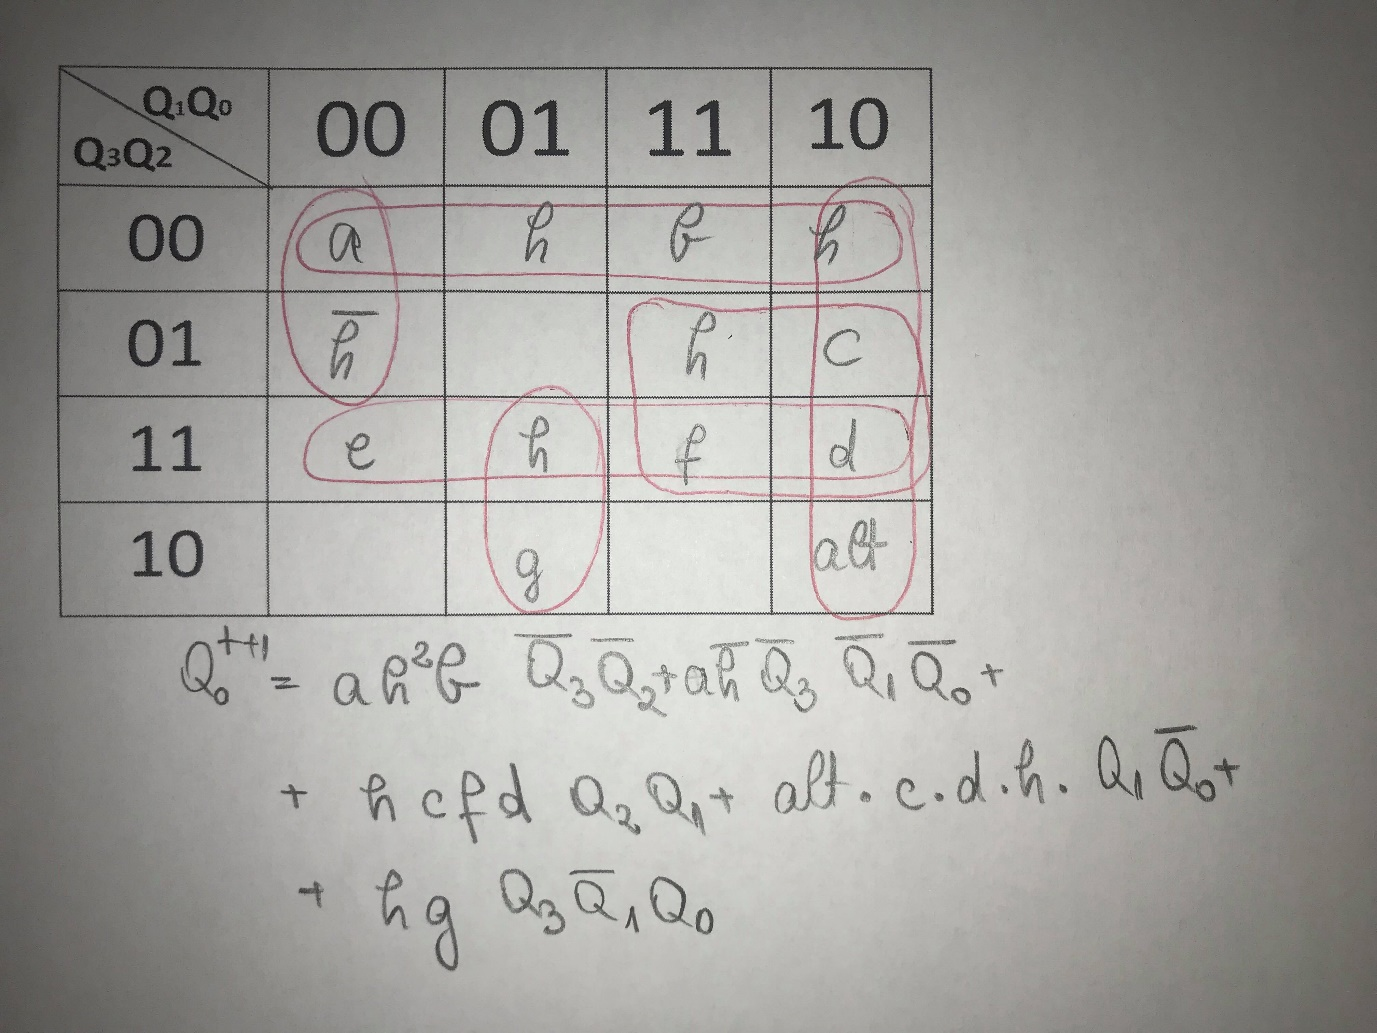 Q₁Q₀ 00 01 11 10
Q₃Q₂
00 a h b h
01 h̅ h c
11 e h f d
10 g alt
Q₀ᵗ⁺¹ = a h² b Q̅₃ Q̅₂ + a h̅ Q̅₃ Q̅₁ Q̅₀ +
+ h c f d Q₂ Q₁ + alt · c · d · h · Q₁ Q̅₀ +
+ h g Q₃ Q̅₁ Q₀